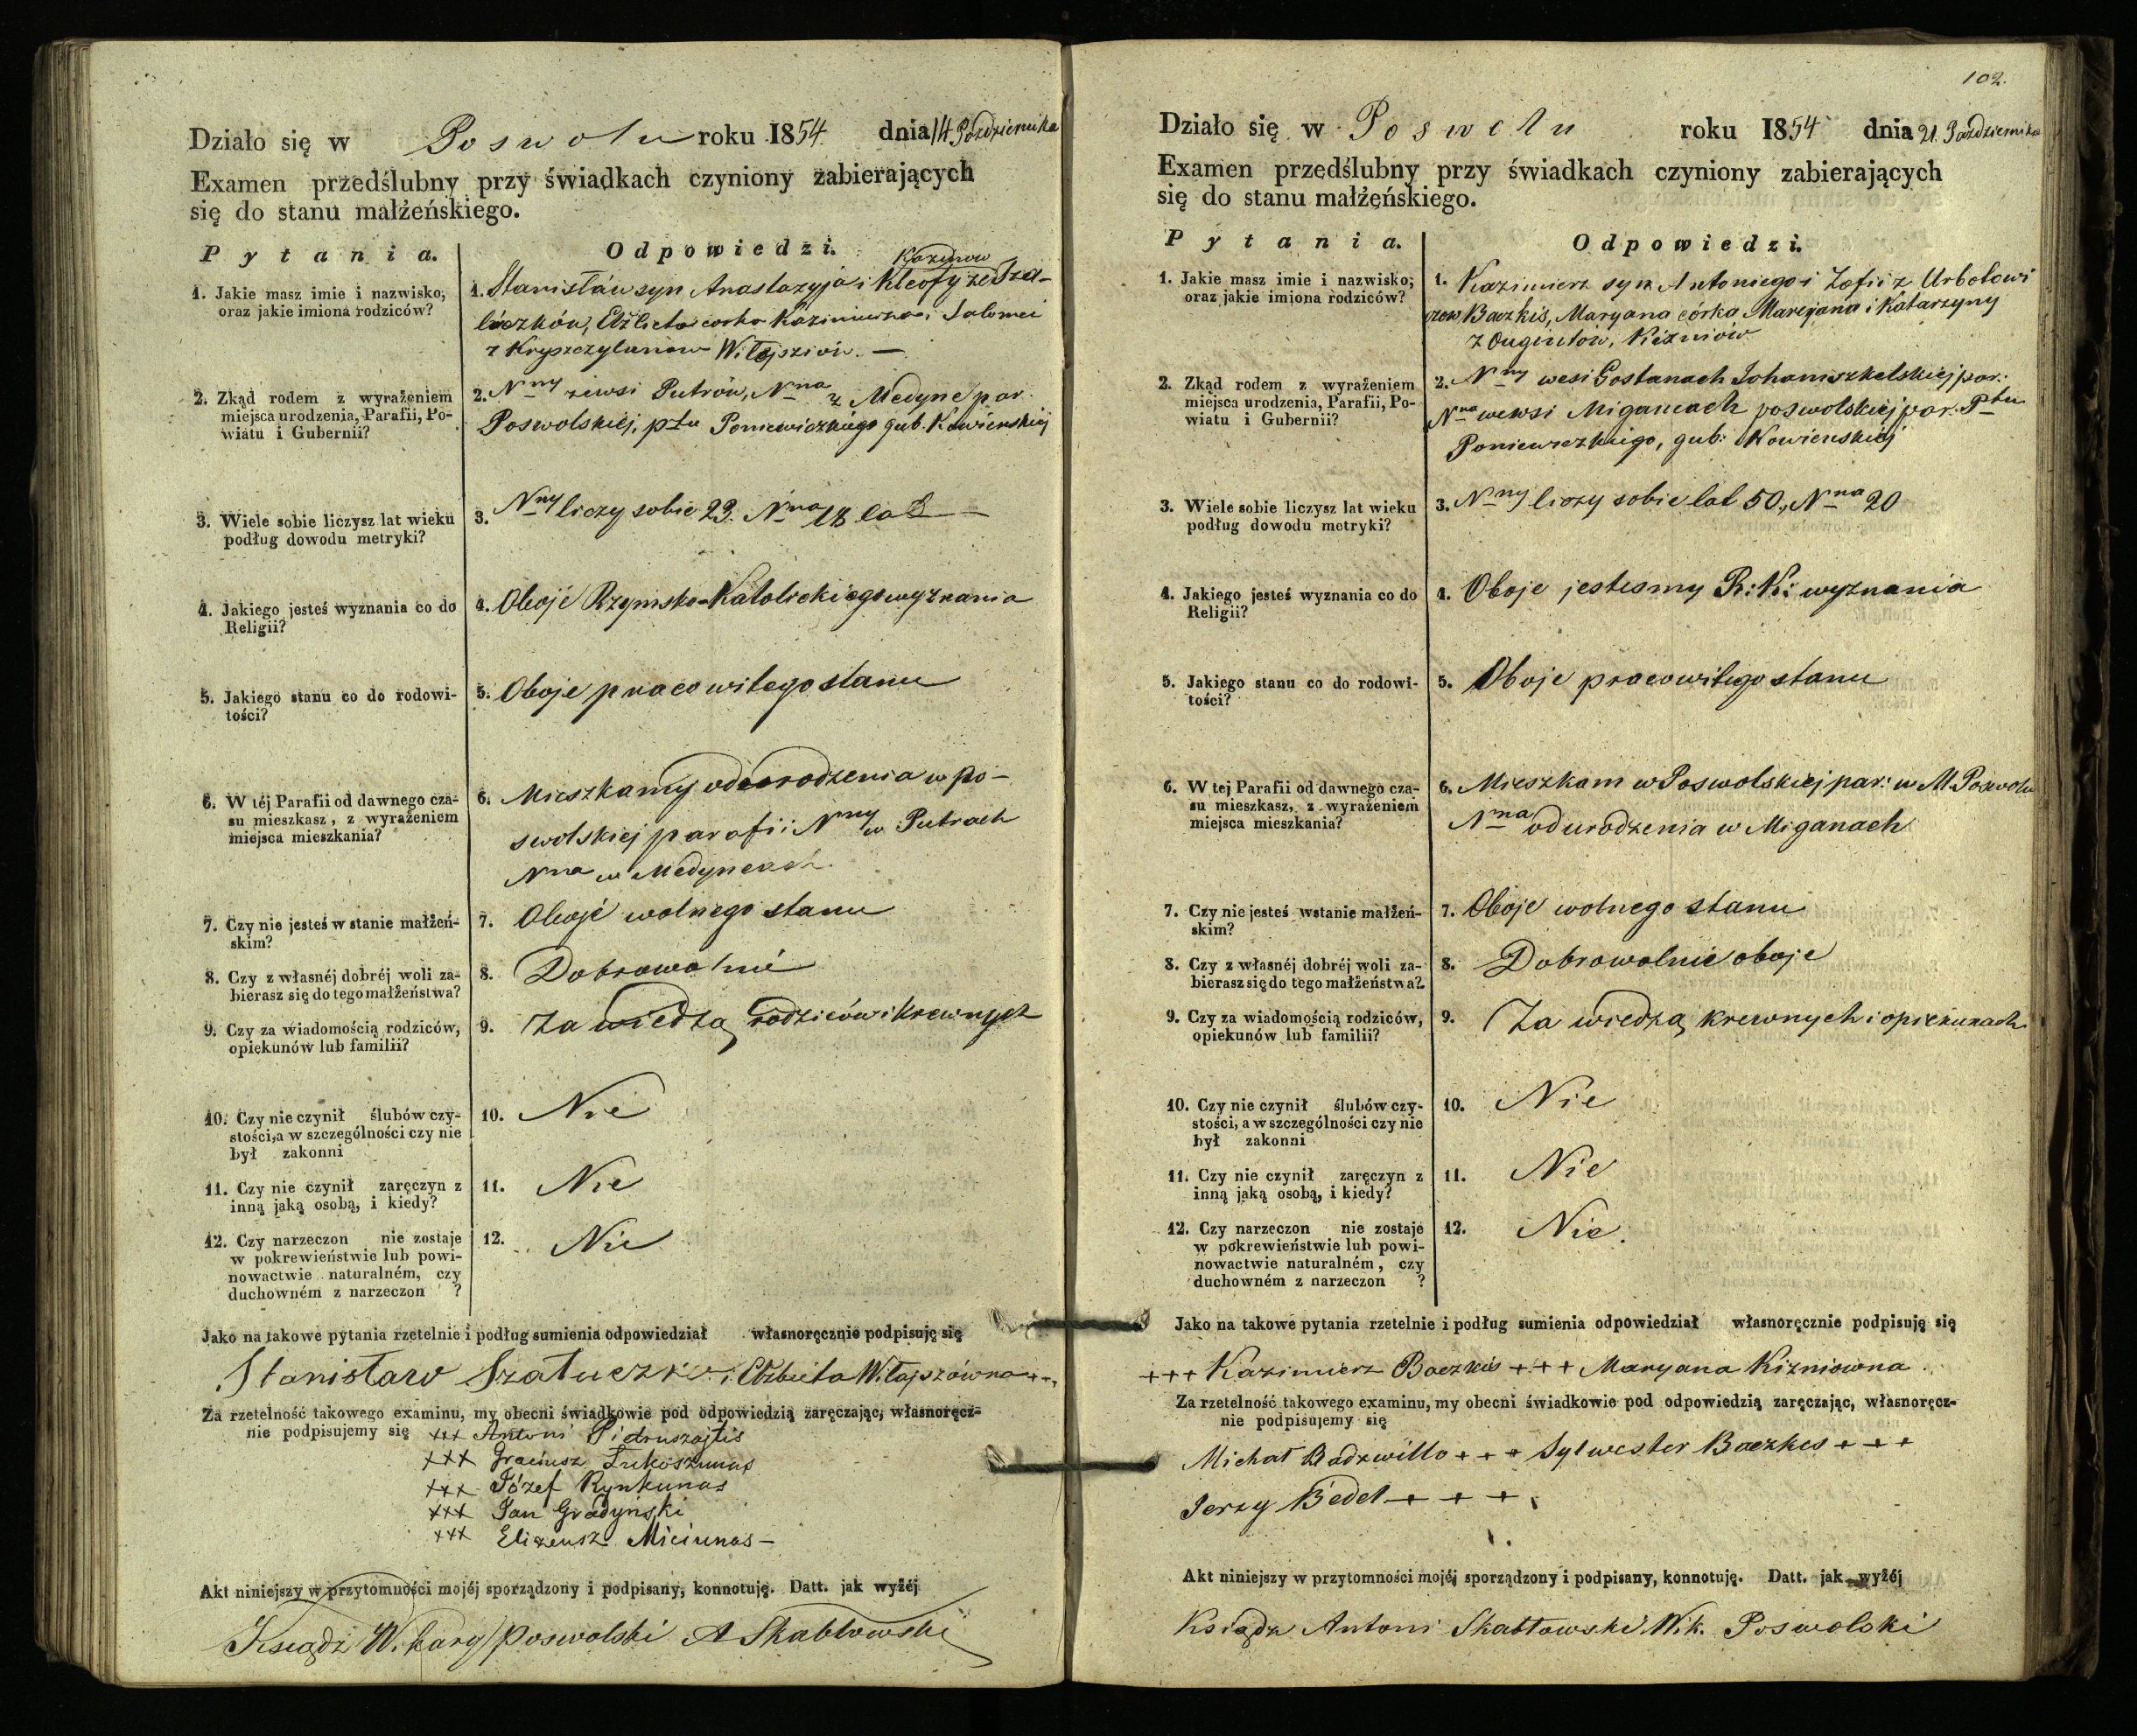 Działo się w Poswolu roku 1854 dnia 14 Października
Examen przedślubny przy świadkach czyniony zabierających
się do stanu małżeńskiego.
Pytania. Odpowiedzi.
1. Jakie masz imie i nazwisko,
oraz jakie imiona rodziców?
1. Stanisław syn Anastazyja i Kleofy ze Sza-
łuczków, Elżbieta corka Kazimierza i Salomei
z Kryszczylunow Witajsziów. —
2. Zkąd rodem z wyrażeniem
miejsca urodzenia, Parafii, Po-
wiatu i Gubernii?
2. Nny zewsi Putrów, Nna z Medyne par.
Poswolskiej, ptu Poniewiezkiego gub. Kowienskiej
3. Wiele sobie liczysz lat wieku
podług dowodu metryki?
3. Nny liczy sobie 23. Nna 18 lat —
4. Jakiego jesteś wyznania co do
Religii?
4. Oboje Rzymsko-Katolickiego wyznania
5. Jakiego stanu co do rodowi-
tości?
5. Oboje pracowitego stanu
6. W téj Parafii od dawnego cza-
su mieszkasz, z wyrażeniem
miejsca mieszkania?
6. Mieszkamy od urodzenia w Po-
swolskiej parafii Nny w Putrach
Nna w Medynkach.
7. Czy nie jesteś w stanie małżeń-
skim?
7. Oboje wolnego stanu
8. Czy z własnéj dobréj woli za-
bierasz się do tego małżeństwa?
8. Dobrowolnie
9. Czy za wiadomością rodziców,
opiekunów lub familii?
9. Za wiedzą rodziców i krewnych
10. Czy nie czynił ślubów czy-
stości, a w szczególności czy nie
był zakonni
10. Nie
11. Czy nie czynił zaręczyn z
inną jaką osobą, i kiedy?
11. Nie
12. Czy narzeczon nie zostaje
w pokrewieństwie lub powi-
nowactwie naturalném, czy
duchowném z narzeczon ?
12. Nie
Jako na takowe pytania rzetelnie i podług sumienia odpowiedział własnoręcznie podpisuję się
Stanisław Szałuczki i Elżbieta Witajszówna +++
Za rzetelność takowego examinu, my obecni świadkowie pod odpowiedzią zaręczając, własnoręcz-
nie podpisujemy się +++ Antoni Pietruszajtis
+++ Łukoszunas
+++ Józef Rynkunas
+++ Jan Gradyński
+++ Elizeusz Miciunas —
Akt niniejszy w przytomności mojéj sporządzony i podpisany, konnotuję. Datt. jak wyżéj
Ksiądz Wikary Poswolski A Skabłowski
102.
Działo się w Poswolu roku 1854 dnia 21. Października
Examen przedślubny przy świadkach czyniony zabierających
się do stanu małżeńskiego.
Pytania. Odpowiedzi.
1. Jakie masz imie i nazwisko,
oraz jakie imiona rodziców?
1. Kazimierz syn Antoniego i Zofii z Urbotowi
czow Baczkis, Maryana córka Maryana i Katarzyny
z Dugintów, Kiźniów
2. Zkąd rodem z wyrażeniem
miejsca urodzenia, Parafii, Po-
wiatu i Gubernii?
2. Nny wesi Gostanach Johaniszkelskiej par.
Nna wewsi Miganeach poswolskiej par. Ptu
Poniewiezkiego, gub: Kowienskiej
3. Wiele sobie liczysz lat wieku
podług dowodu metryki?
3. Nny liczy sobie lat 50, Nna 20
4. Jakiego jesteś wyznania co do
Religii?
4. Oboje jestesmy R: K: wyznania
5. Jakiego stanu co do rodowi-
tości?
5. Oboje pracowitego stanu
6. W tej Parafii od dawnego cza-
su mieszkasz, z wyrażeniem
miejsca mieszkania?
6. Mieszkam w Poswolskiej par: w M. Poswolu
Nna od urodzenia w Miganach
7. Czy nie jesteś wstanie małżeń-
skim?
7. Oboje wolnego stanu
8. Czy z własnéj dobréj woli za-
bierasz się do tego małżeństwa?
8. Dobrowolnie oboje
9. Czy za wiadomością rodziców,
opiekunów lub familii?
9. Za wiedzą krewnych i opiekunach
10. Czy nie czynił ślubów czy-
stości, a w szczególności czy nie
był zakonni
10. Nie
11. Czy nie czynił zaręczyn z
inną jaką osobą, i kiedy?
11. Nie
12. Czy narzeczon nie zostaje
w pokrewieństwie lub powi-
nowactwie naturalném, czy
duchowném z narzeczon ?
12. Nie.
Jako na takowe pytania rzetelnie i podług sumienia odpowiedział własnoręcznie podpisuję się
+++ Kazimierz Baczkis +++ Maryana Kiźniowna
Za rzetelność takowego examinu, my obecni świadkowie pod odpowiedzią zaręczając, własnoręcz-
nie podpisujemy się
Michał Radziwiłło +++ Sylwester Baczkes +++
Jerzy Bedel +++
Akt niniejszy w przytomności mojéj sporządzony i podpisany, konnotuję. Datt. jak wyżéj
Ksiądz Antoni Skabłowski Wik. Poswolski